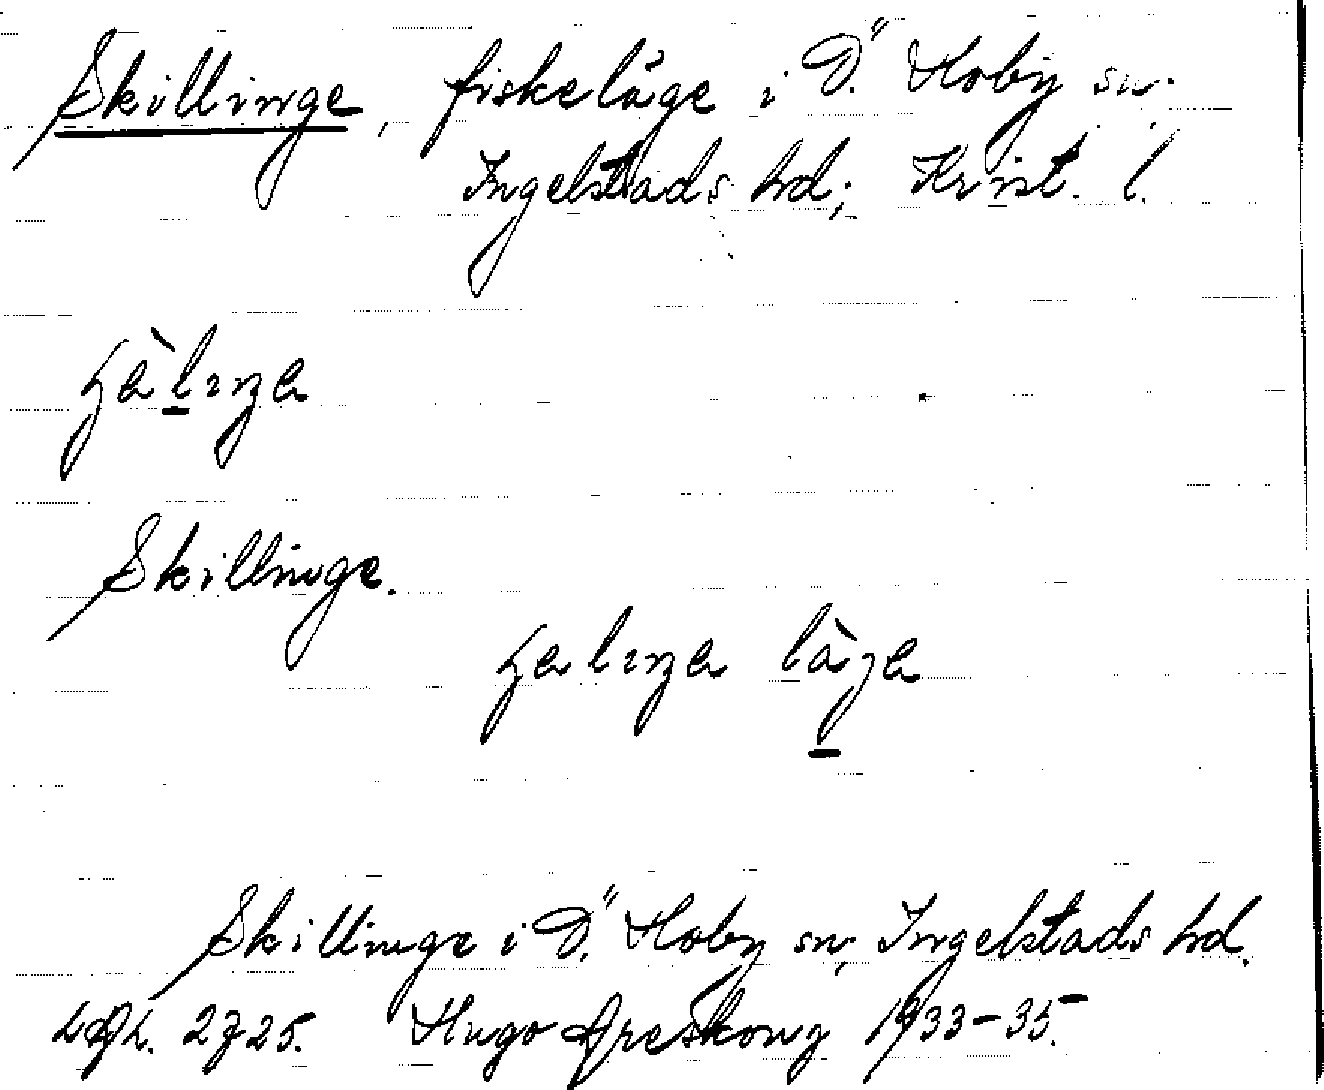 Skillinge, fiskeläge i Ö. Hoby sn.
Ingelstads hd; Krist. l.
Skillinge.
Skillinge i Ö. Hoby sn, Ingelstads hd.
2725. Hugo Areskoug 1933-35.